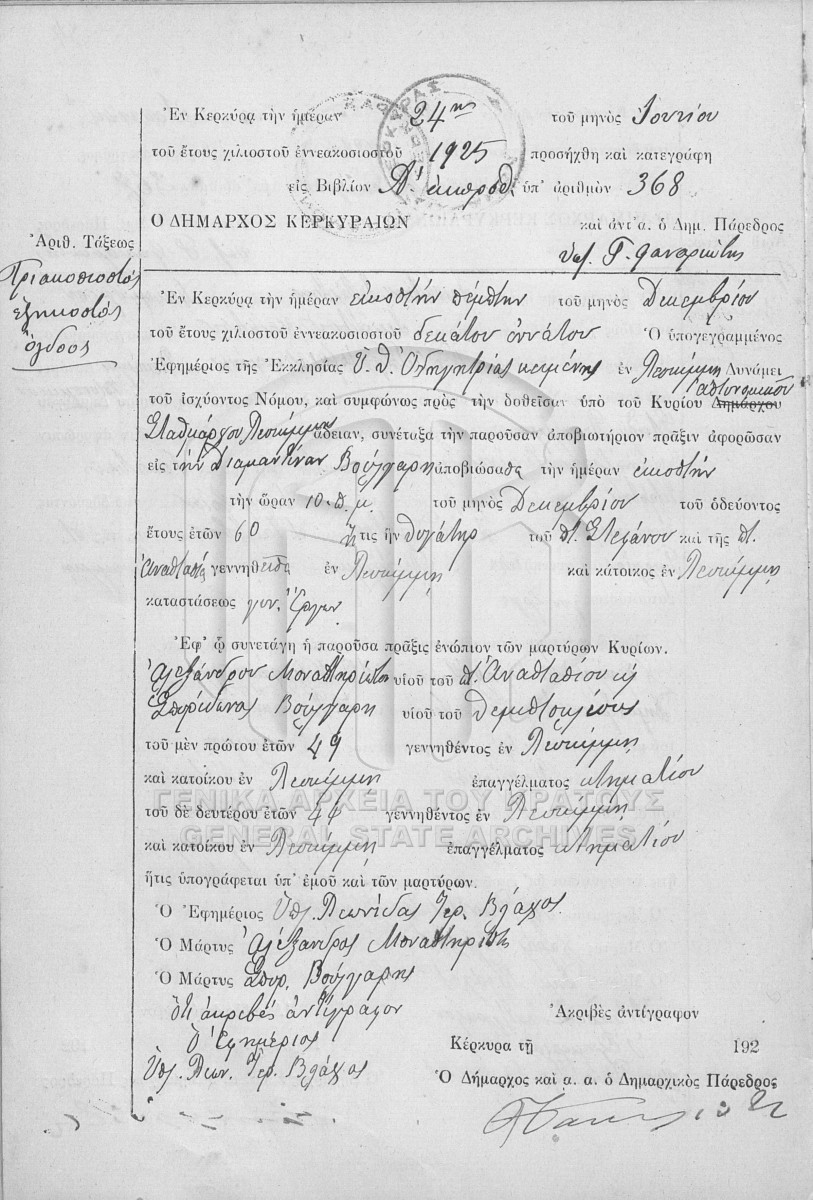 Ἐν Κερκύρᾳ τὴν ἡμέραν 24ην τοῦ μηνὸς Ἰουνίου
τοῦ ἔτους χιλιοστοῦ ἐννεακοσιοστοῦ 1925 προσήχθη καὶ κατεγράφη
εἰς Βιβλίον Α' ἐκπροθ. ὑπ' ἀριθμὸν 368
Ο ΔΗΜΑΡΧΟΣ ΚΕΡΚΥΡΑΙΩΝ
καὶ ἀντ' α. ὁ Δημ. Πάρεδρος
Ἀριθ. Τάξεως
Τριακοσιοστός
ἑξηκοστός
ὄγδοος
Ἐν Κερκύρᾳ τὴν ἡμέραν εἰκοστὴν πέμπτην τοῦ μηνὸς Δεκεμβρίου
τοῦ ἔτους χιλιοστοῦ ἐννεακοσιοστοῦ δεκάτου ἐννάτου Ὁ ὑπογεγραμμένος
Ἐφημέριος τῆς Ἐκκλησίας Ὑ. Θ. Ὁδηγητρίας κειμένης ἐν Λευκίμμῃ Δυνάμει
τοῦ ἰσχύοντος Νόμου, καὶ συμφώνως πρὸς τὴν δοθεῖσαν ὑπὸ τοῦ Κυρίου Δημάρχου Ἀστυνομικοῦ
Σταθμάρχου Λευκίμμης ἄδειαν, συνέταξα τὴν παροῦσαν ἀποβιωτήριον πρᾶξιν ἀφορῶσαν
εἰς τὴν Διαμαντίναν Βούλγαρη ἀποβιώσασα τὴν ἡμέραν εἰκοστὴν
τὴν ὥραν 10 π. μ. τοῦ μηνὸς Δεκεμβρίου τοῦ ὁδεύοντος
ἔτους ἐτῶν 60 ἥτις ἦν θυγάτηρ τοῦ π. Στεφάνου καὶ τῆς π.
Ἀναστασ. γεννηθεῖσα ἐν Λευκίμμῃ καὶ κάτοικος ἐν Λευκίμμῃ
καταστάσεως γυν. Ἔργων
Ἐφ' ᾧ συνετάγη ἡ παροῦσα πρᾶξις ἐνώπιον τῶν μαρτύρων Κυρίων.
Ἀλεξάνδρου Μοναστηριώτου υἱοῦ τοῦ π. Ἀναστασίου κ
Σπυρίδωνος Βούλγαρη υἱοῦ τοῦ Θεμιστοκλέους
τοῦ μὲν πρώτου ἐτῶν 49 γεννηθέντος ἐν Λευκίμμῃ
καὶ κατοίκου ἐν Λευκίμμῃ ἐπαγγέλματος κτηματίου
ΓΕΝΙΚΑ ΑΡΧΕΙΑ ΤΟΥ ΚΡΑΤΟΥΣ
τοῦ δὲ δευτέρου ἐτῶν 44 γεννηθέντος ἐν Λευκίμμῃ
GENERAL STATE ARCHIVES
καὶ κατοίκου ἐν Λευκίμμῃ ἐπαγγέλματος κτηματίου
ἥτις ὑπογράφεται ὑπ' ἐμοῦ καὶ τῶν μαρτύρων.
Ὁ Ἐφημέριος Ὑπ. Λεωνίδας Ἱερ. Βλάχος
Ὁ Μάρτυς Ἀλέξανδρος Μοναστηριώτης
Ὁ Μάρτυς Σπυρ. Βούλγαρης
Ὅτι ἀκριβὲς ἀντίγραφον
Ὁ Ἐφημέριος
Ὑπ. Λεων. Ἱερ. Βλάχος
Ἀκριβὲς ἀντίγραφον
Κέρκυρα τῇ 192
Ὁ Δήμαρχος καὶ α. α. ὁ Δημαρχικὸς Πάρεδρος